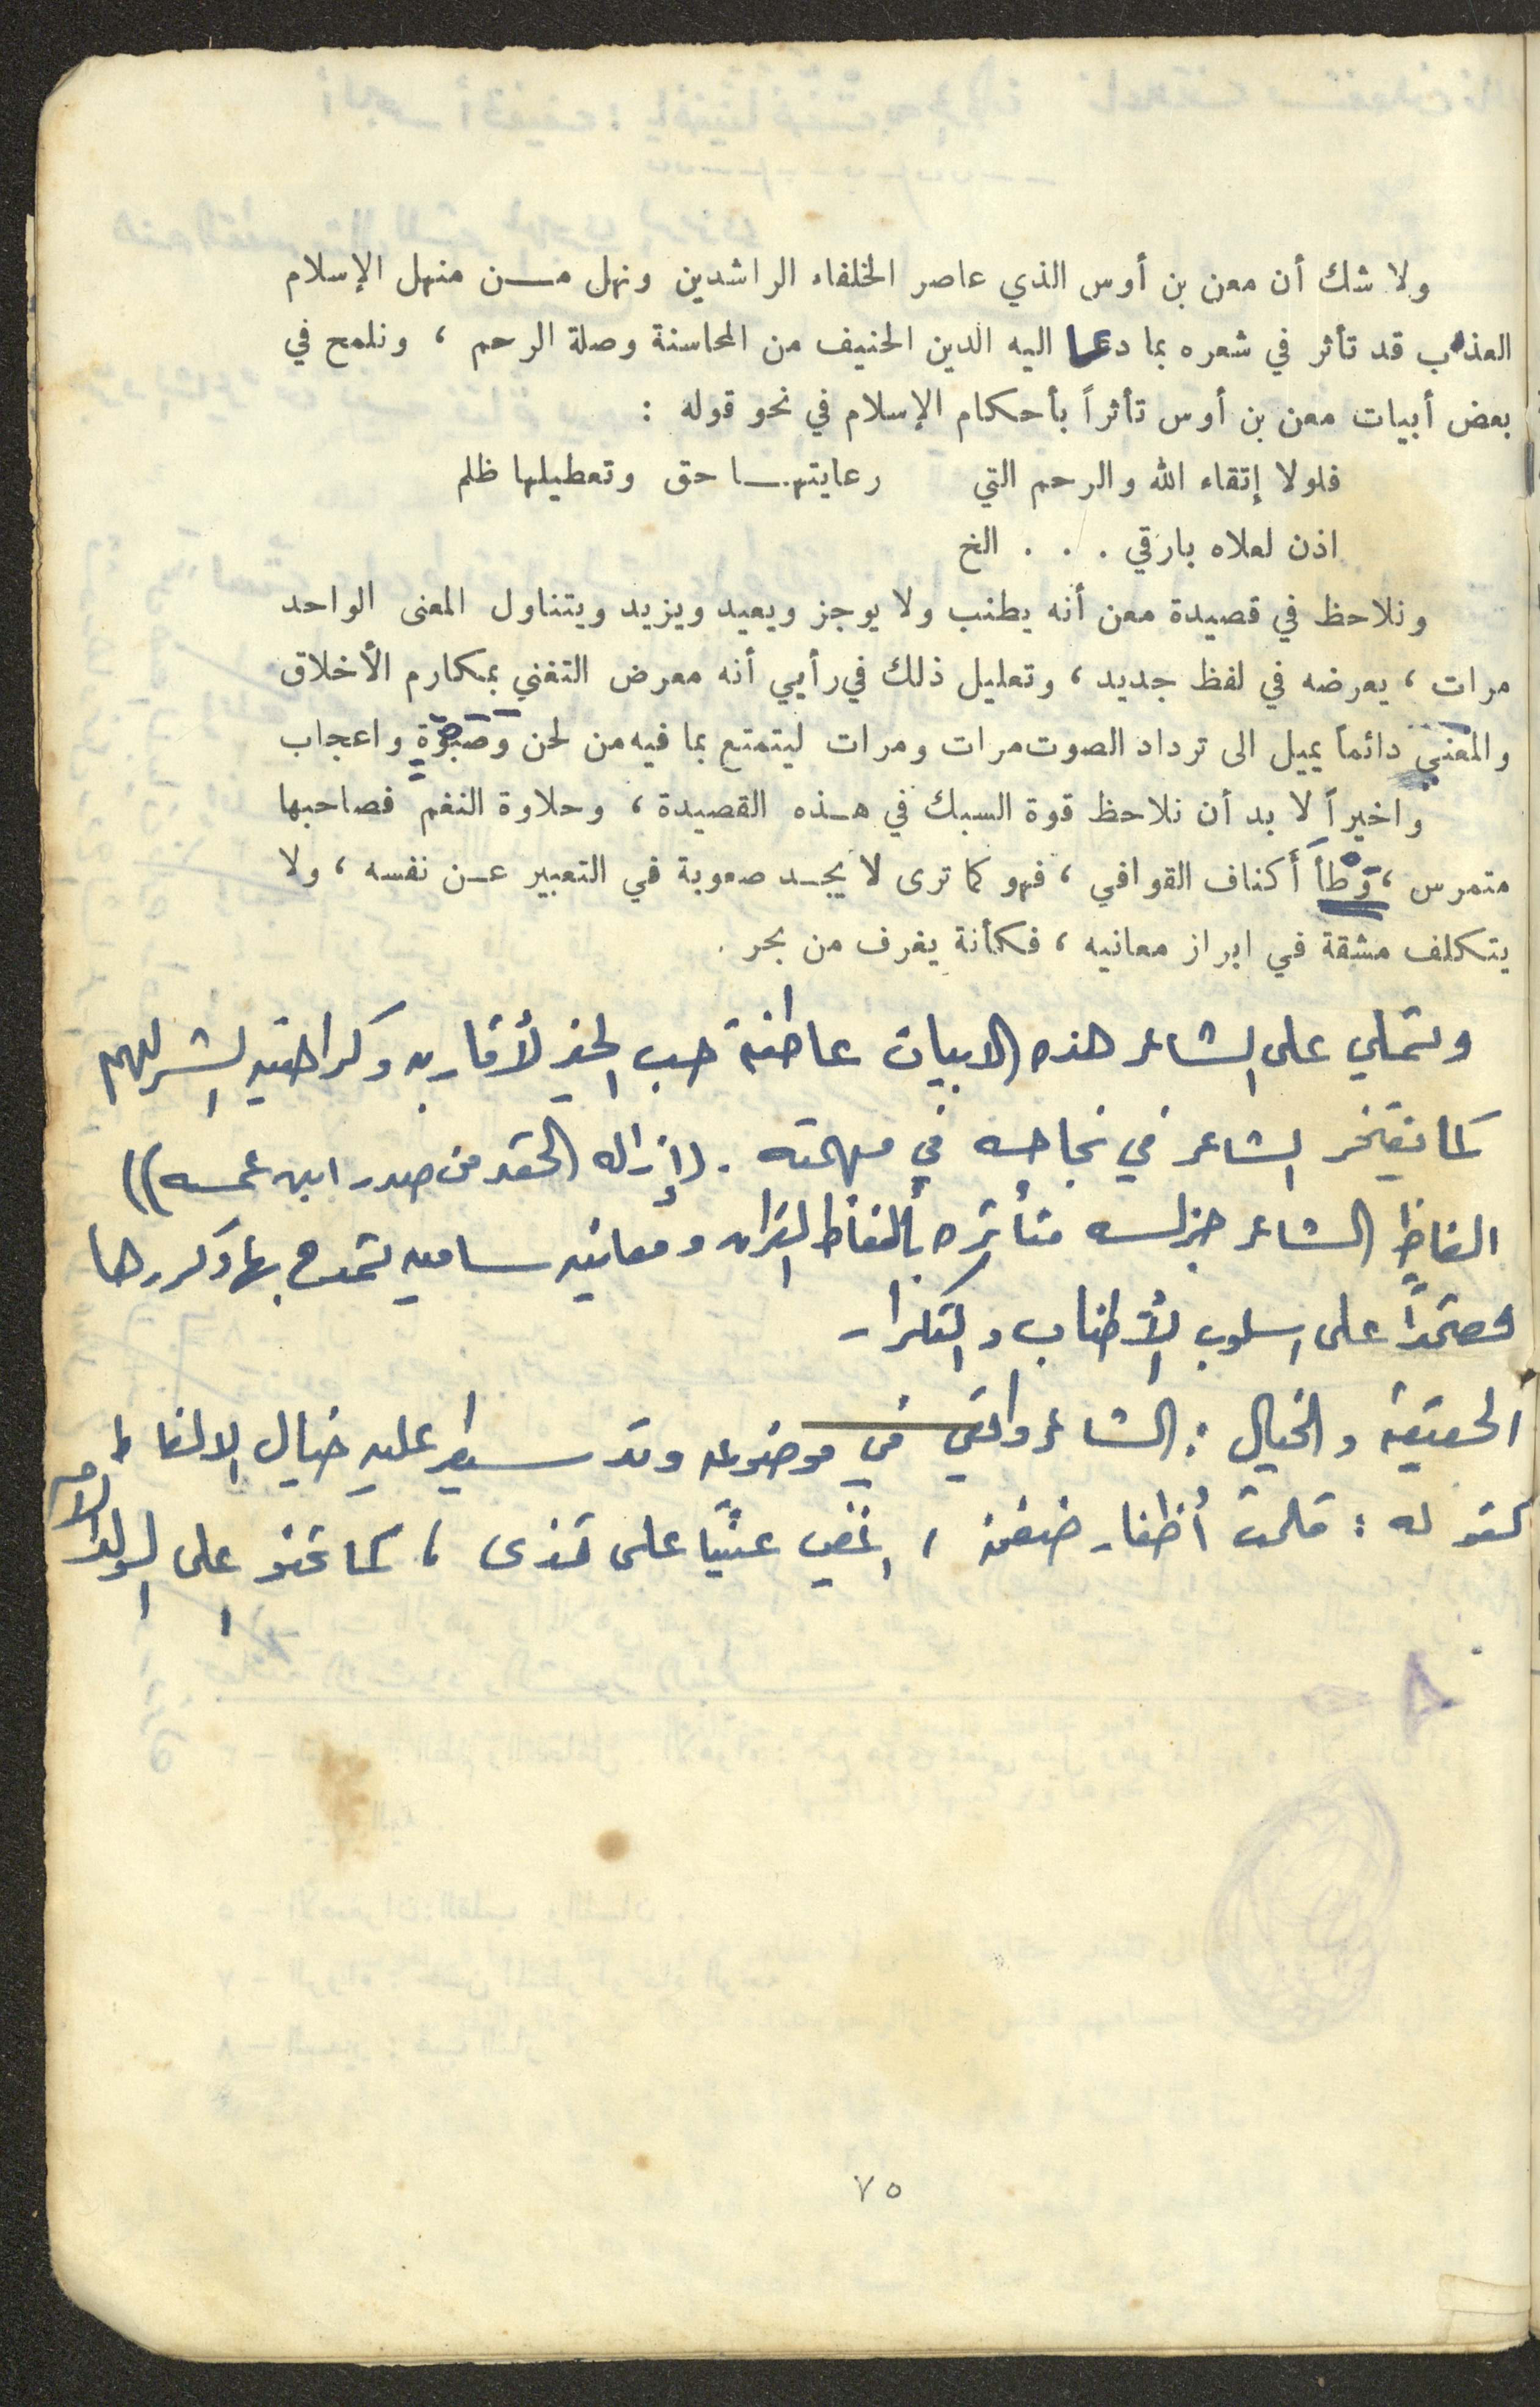 ولا شك أن معن بن أوس الذي عاصر الخلفاء الراشدين ونهل من منهل الإسلام
العذب قد تأثر في شعره بما دعا اليه الدين الحنيف من المحاسنة وصلة الرحم ، ونلمح في
بعض أبيات معن بن أوس تأثراً بأحكام الإسلام في نحو قوله :
فلولا إتقاء الله والرحم التي رعايتها حق وتعطيلها ظلم
اذن لعلاه بارقي . . . الخ
ونلاحظ في قصيدة معن أنه يطنب ولا يوجز ويعيد ويزيد ويتناول المعنى الواحد
مرات ، يعرضه في لفظ جديد ، وتعليل ذلك في رأيي أنه معرض التغني بمكارم الأخلاق
والمغني دائماً يميل الى ترداد الصوت مرات ومرات ليتمتع بما فيه من لحن وصَبْوَةٍ واعجاب
واخيراً لا بد أن نلاحظ قوة السبك في هذه القصيدة ، وحلاوة النغم فصاحبها
متمرس ، وَطْأَ أكناف القوافي ، فهو كما ترى لا يجد صعوبة في التعبير عن نفسه ، ولا
يتكلف مشقة في ابراز معانيه ، فكأنة يغرف من بحر .
وتملي على الشاعر هذه الابيات عاطفة حب الخير لأقاربه وكراهيته الشر لهم
كما يفتخر الشاعر في نجاحه في مهمته . (إزاله الحقد من صدر ابن عمه))
الفاظ الشاعر جزله متأثره بألفاظ القرآن ومعانيه ساميه تمدح بها وكررها
معتمداً على اسلوب الأطناب والتكرار
الحقيقة والخيال : الشاعر واقعي في موضوعه وقد سيطر عليه خيال الالفاظ
كقوله : قلمت أظفار ضغنه ، اغضي عيناً على قذى ، كما تحنو على الولد الأم
٧٥